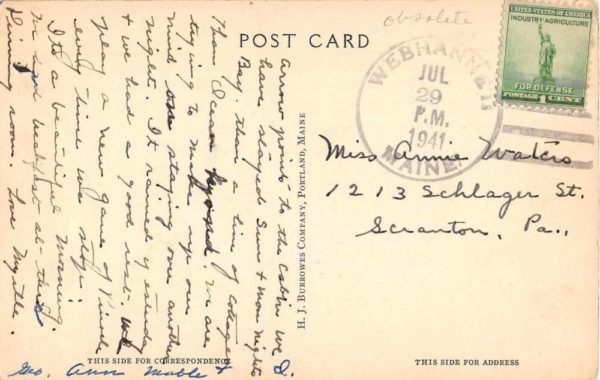 obsolete
POST CARD
WEBHANNET
JUL
29
P.M.
1941
MAINE.
UNITED STATES OF AMERICA
INDUSTRY AGRICULTURE
FOR DEFENSE
POSTAGE 1 CENT
Miss Annie Waters
1213 Schlager St.
Scranton, Pa.,
arrow points to the cabin we
have stayed Sun & Mon nights
Bay. then a line of cottages
Then Ocean beyond. We are
trying to make up our
mind staying one another
night. It rained yesterday
& we had a good rest. We
play a new game of
every time we stop.
It's a beautiful Morning.
We had breakfast at this
Dining room. Love Myrtle.
Geo. Ann Mable &
H. J. BURROWES COMPANY, PORTLAND, MAINE
THIS SIDE FOR CORRESPONDENCE
THIS SIDE FOR ADDRESS